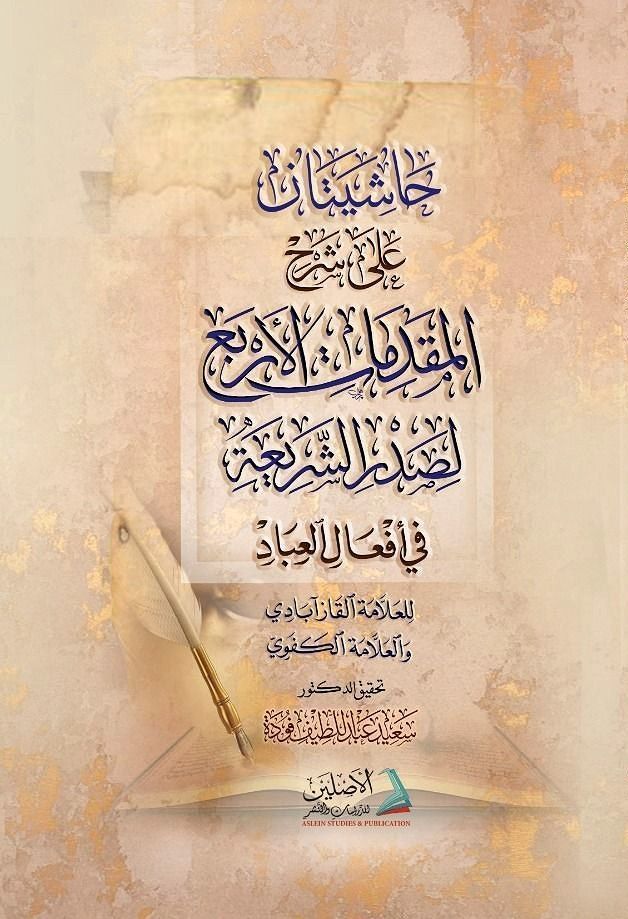 حَاشِيَتَان
عَلَى شَرْحِ
المُقَدِّمَاتِ الأَرْبَع
لِصَدْرِ الشَّرِيعَةِ
فِي أَفْعَالِ العِبَادِ
لِلعَلَّامَة القَازآبَادِي
وَالعَلَّامَة الكَفَوِيّ
تحقيق الدكتور
سَعِيد عَبْد اللَّطِيف فُودَة
الأَصْلَيْن
للدراسات والنشر
ASLEIN STUDIES & PUBLICATION